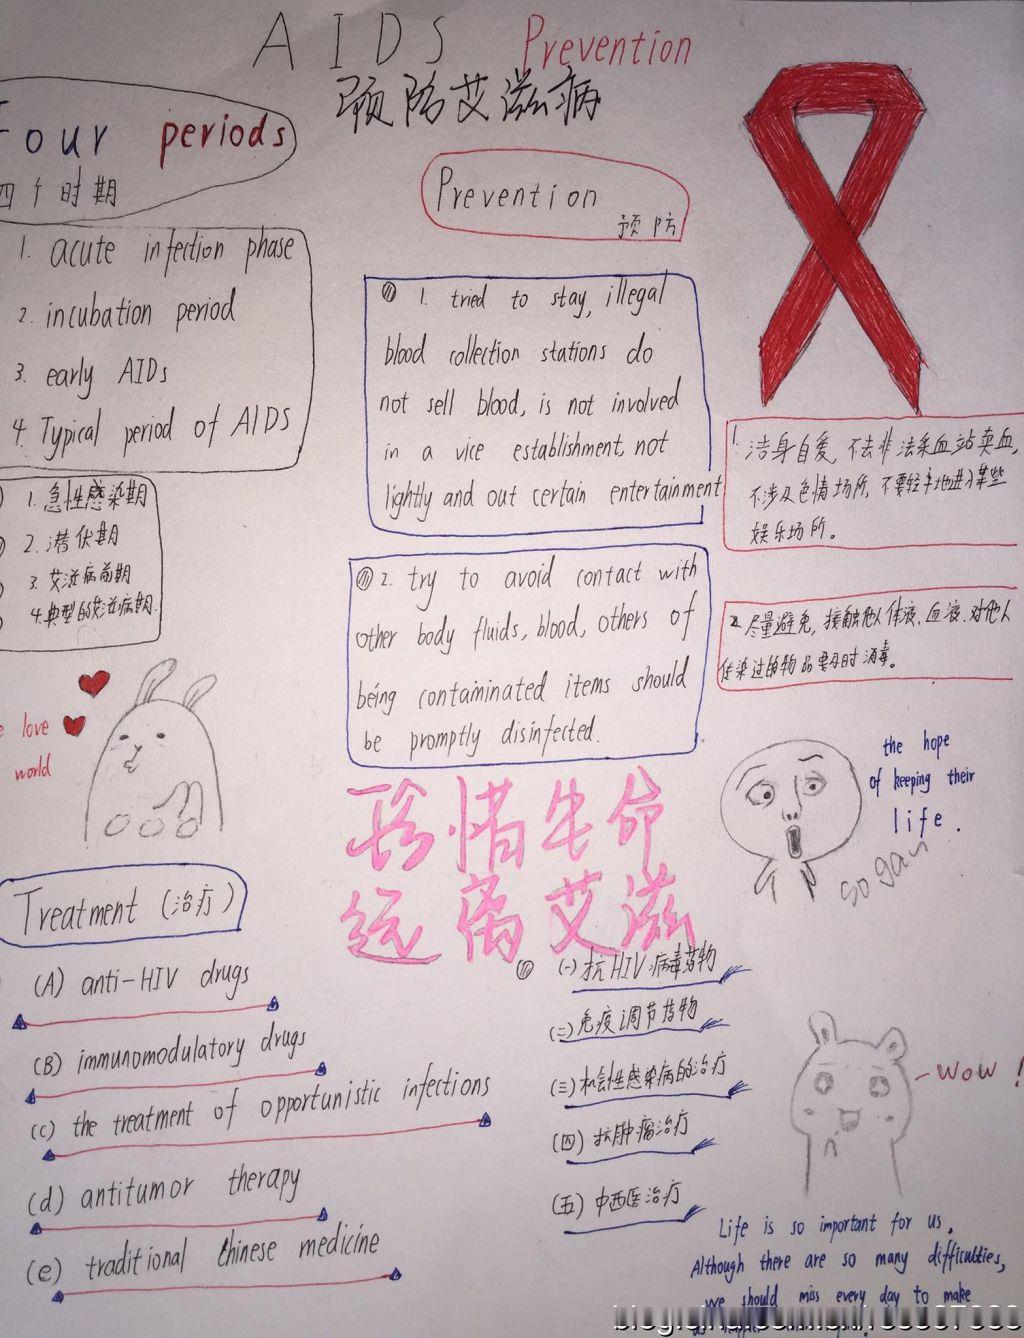 AIDS Prevention
预防艾滋病
Four periods
四个时期
1. acute infection phase
2. incubation period
3. early AIDs
4. Typical period of AIDS
1. 急性感染期
2. 潜伏期
3. 艾滋病前期
4. 典型的艾滋病期.
love
world
Prevention
预防
1. tried to stay, illegal
blood collection stations do
not sell blood, is not involved
in a vice establishment, not
lightly and out certain entertainment
2. try to avoid contact with
other body fluids, blood, others of
being contaminated items should
be promptly disinfected.
1. 洁身自爱, 不去非法采血站卖血,
不涉及色情场所, 不要轻率地进入某些
娱乐场所。
2. 尽量避免, 接触他人体液、血液. 对他人
传染过的物品要及时消毒。
the hope
of keeping their
life.
so gay
珍惜生命
远离艾滋
Treatment (治疗)
(A) anti-HIV drugs
(B) immunomodulatory drugs
(c) the treatment of opportunistic infections
(d) antitumor therapy
(e) traditional Chinese medicine
(一) 抗HIV病毒药物
(二) 免疫调节药物
(三) 机会性感染病的治疗
(四) 抗肿瘤治疗
(五) 中西医治疗
wow!
Life is so important for us.
Although there are so many difficulties,
we should miss every day to make